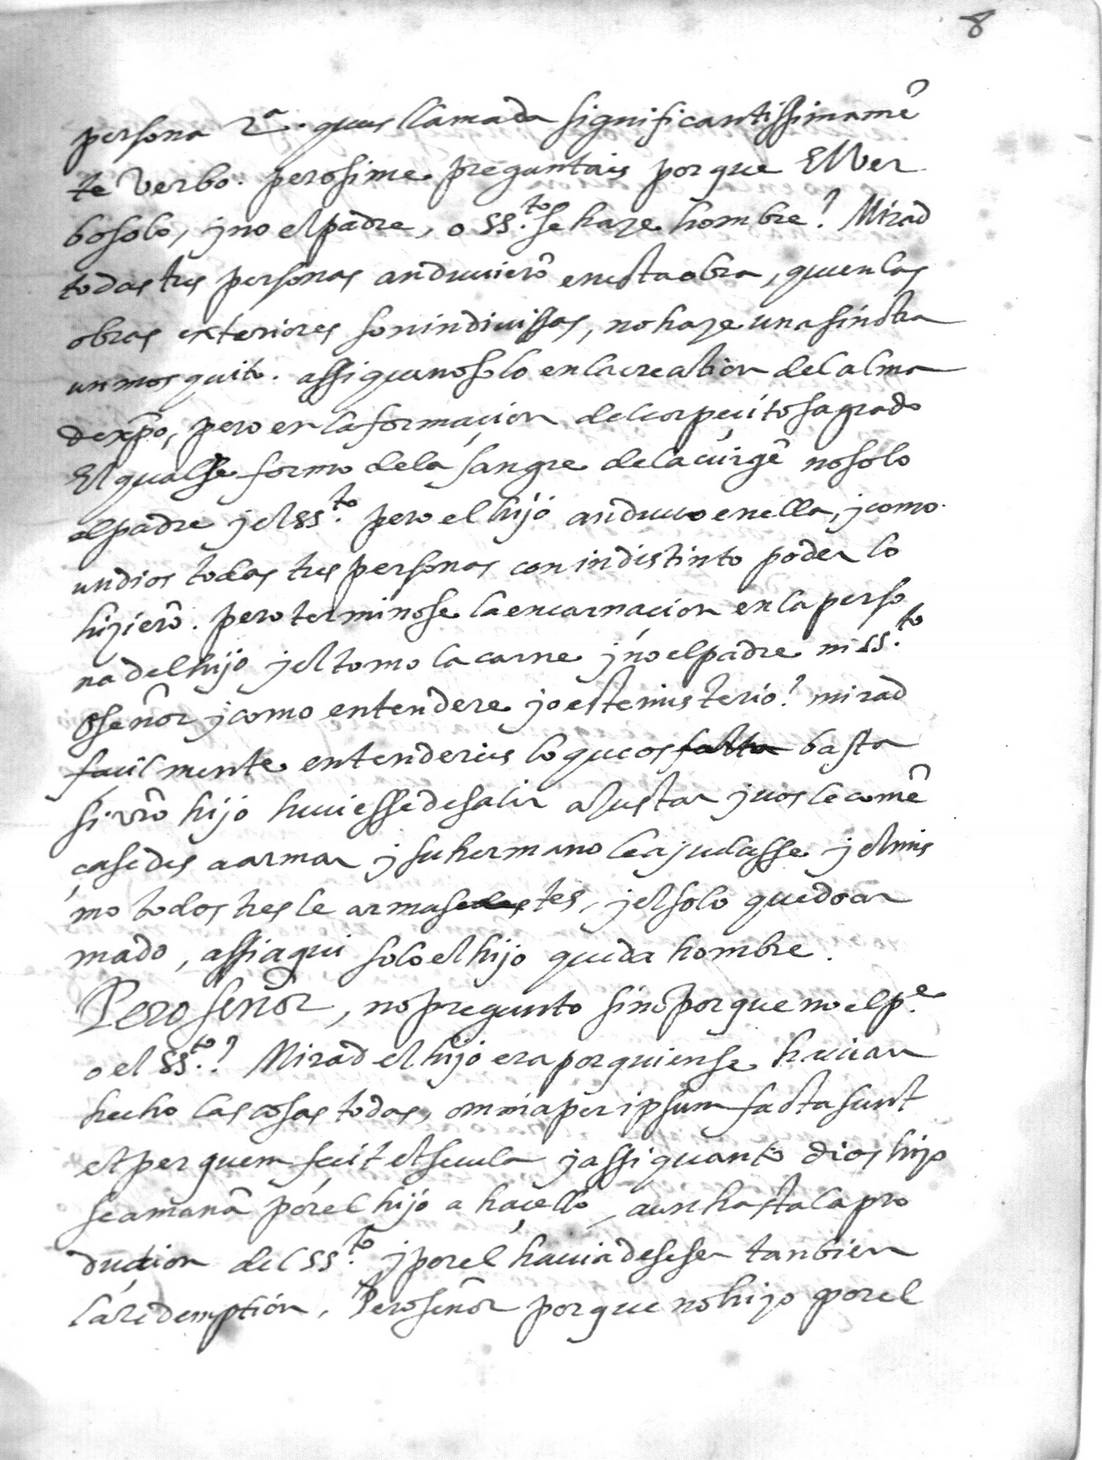 8
persona 2ª. que es llamada significantissimamẽ
te Verbo. pero si me preguntais por que El Ver
bo solo, y no el padre, o SS.to se haze hombre? Mirad
todas tres personas anduuierõ en esta obra, que en las
obras exteriores son indiuissas, no haze una sin otra
un mosquito. assi que no solo en la creation del alma
de xp̃o, pero en la formaçion del corpeçito sagrado
El qual se formo de la sangre de la uirgẽ no solo
el padre y el SS.to pero el hijo anduuo en ella, y como
un dios todas tres personas con indistinto poder lo
hizierõ. pero terminose la encarnaçion en la perso
na del hijo y el tomo la carne y no el padre ni SS.to
O señor y como entendere yo este misterio? mirad
facilmente entendereis lo que os falta basta
si vrõ hijo huuiesse de salir a Justar y uos le comẽ
çasedes a armar y su hermano le ajudasse y el mis
mo todos tres le armasedestes, y el solo quedo ar
mado, assi aqui solo el hijo queda hombre.
Pero señor, no pregunto sino por que no el p.e
o el SS.to? Mirad el hijo era por quien se hauian
hecho las cosas todas, omnia per ipsum facta sunt
et per quem fecit et secula y assi quanto dios hizo
se amañã por el hijo a haçello, aun hasta la pro
duction del SS.to y por el hauia de ser tanbien
la redemption. Pero señor por que no hizo por el